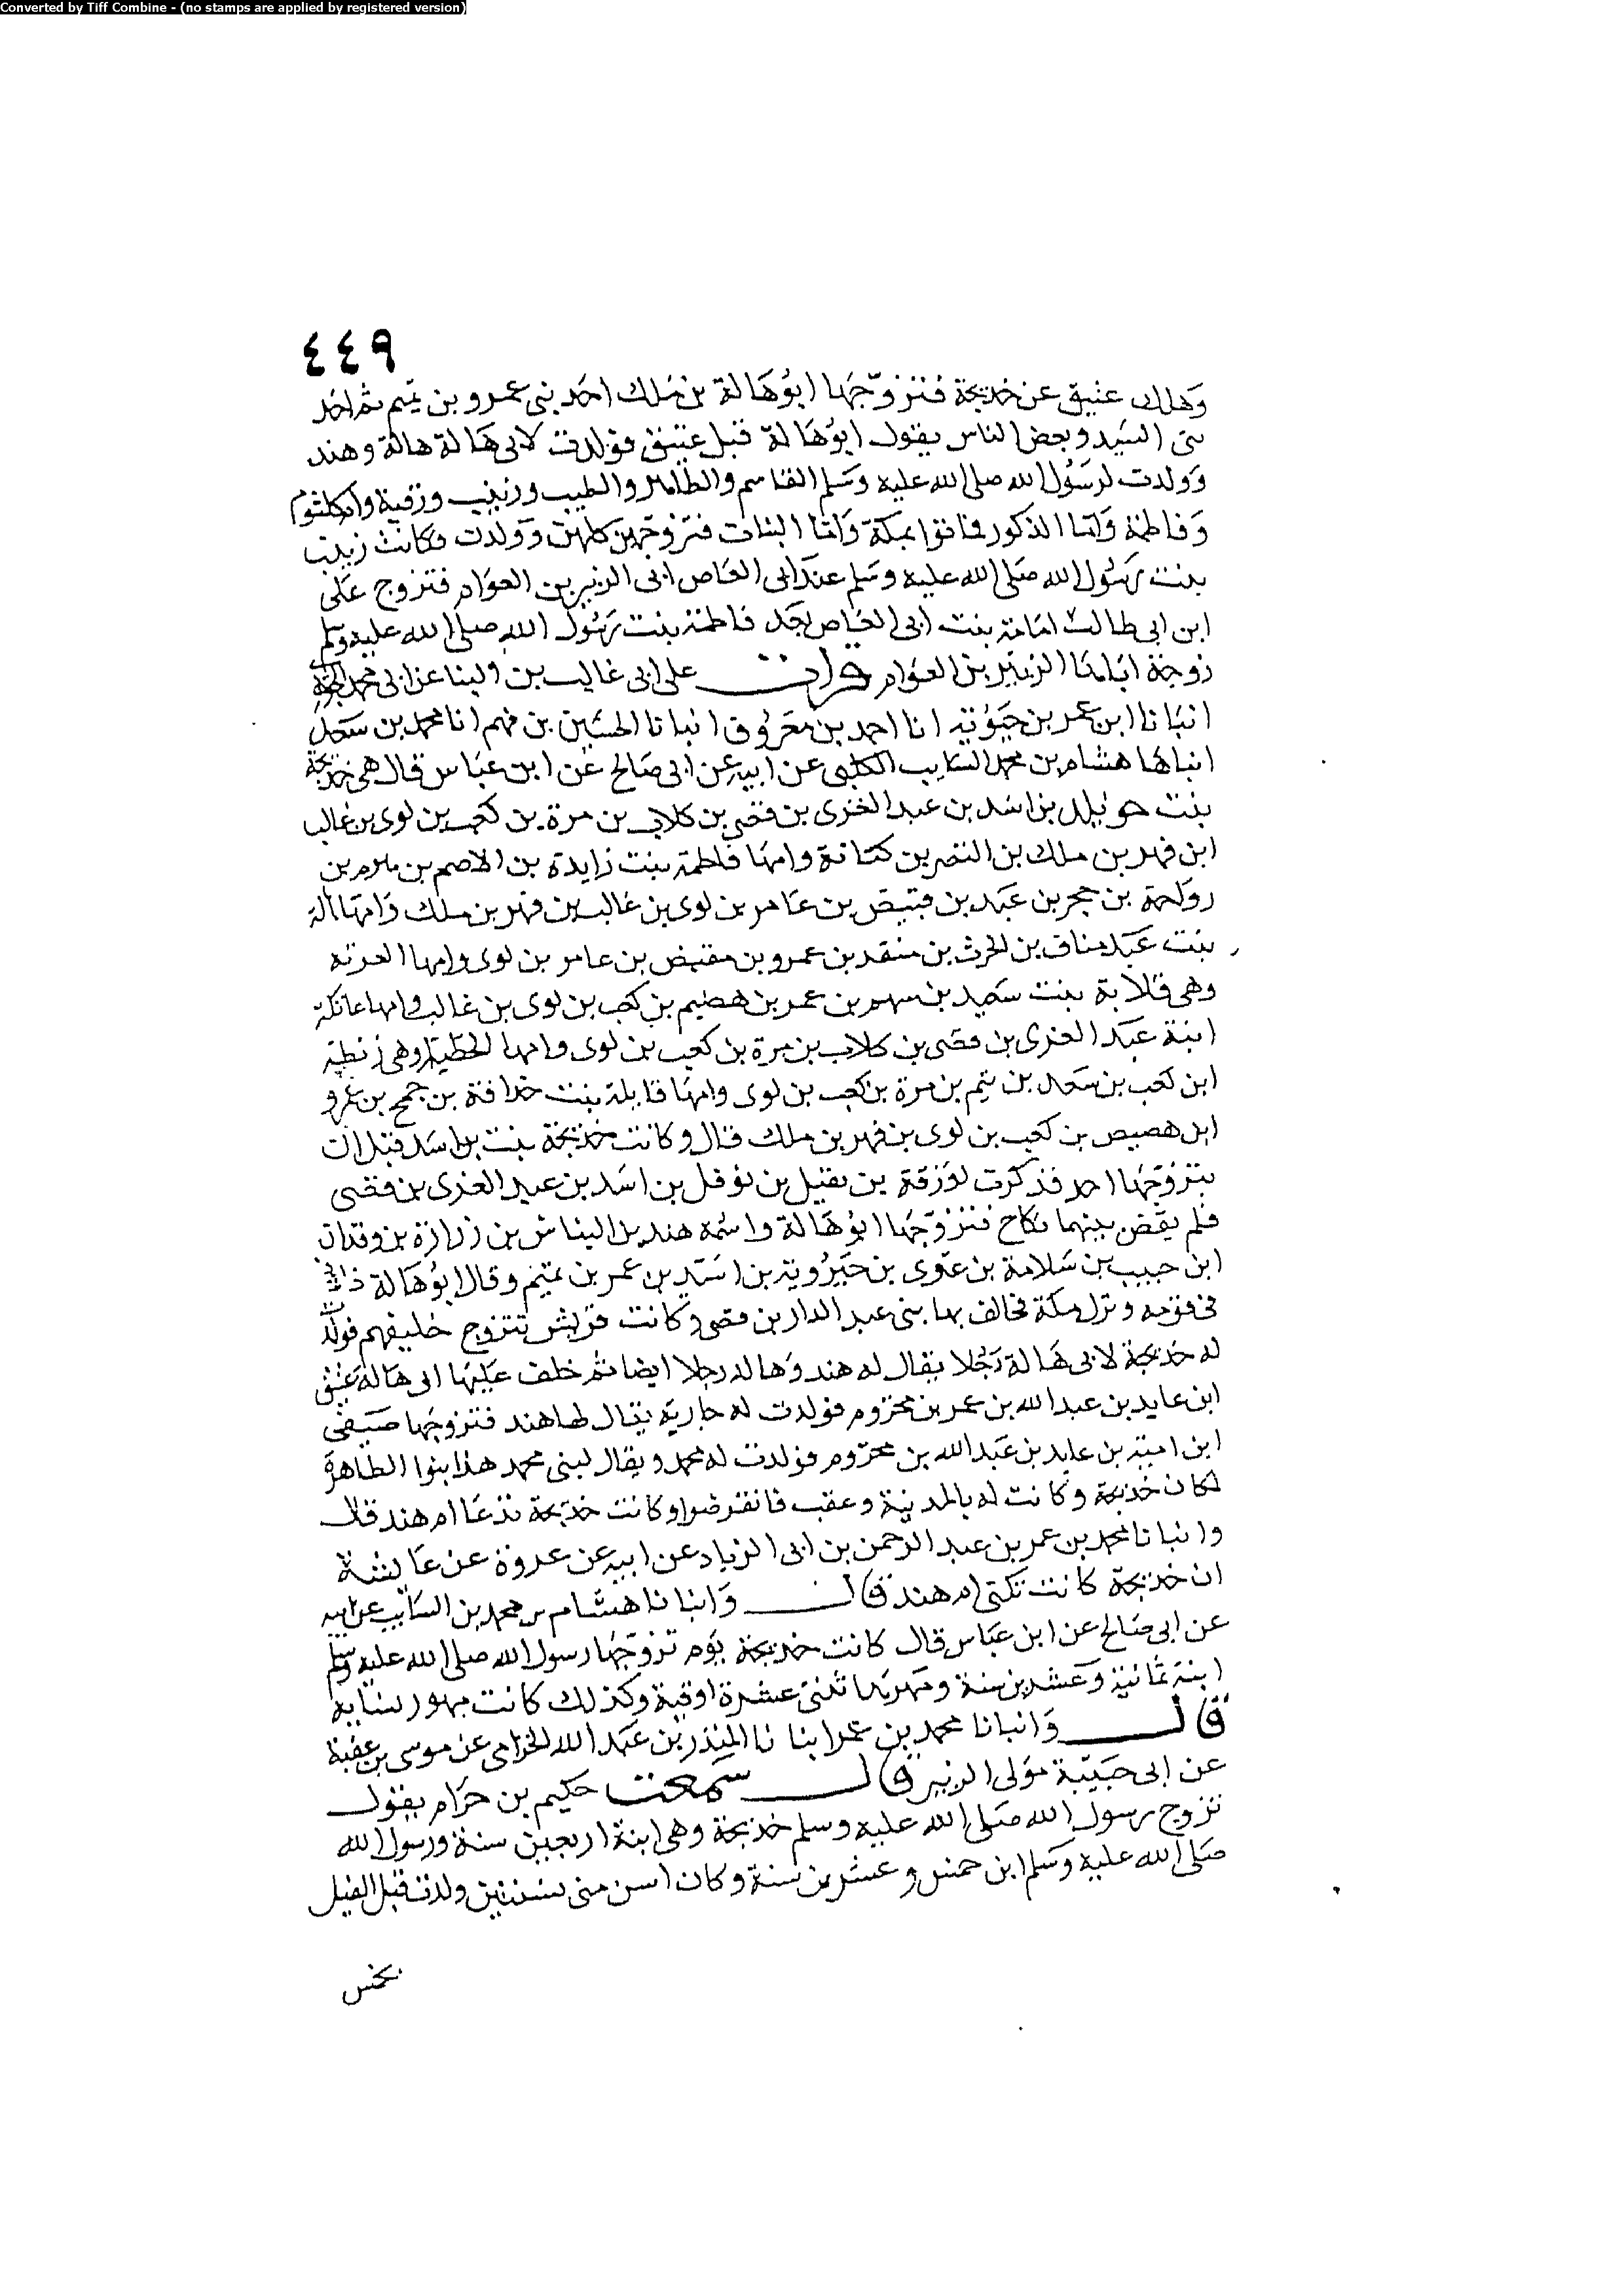 Converted by Tiff Combine - (no stamps are applied by registered version)
٤٤٩
وهلك عتيق عن خديجة فتزوجها ابو هالة بن ملك احد بني عمرو بن تميم ثم احد
بني اسيد وبعض الناس يقول ابو هالة قبل عتيق فولدت لابي هالة هالة وهند
وولدت لرسول الله صلى الله عليه وسلم القاسم والطاهر والطيب وزينب ورقية وام كلثوم
وفاطمة واما الذكور فماتوا بمكة واما البنات فتزوجهن كلهن وولدت فكانت زينب
بنت رسول الله صلى الله عليه وسلم عند ابي العاص ابى الزبير بن العوام فتزوج على
ابن ابي طالب امامة بنت ابي العاص بعد فاطمة بنت رسول الله صلى الله عليه وسلم
زوجة اياها الزبير بن العوام قرات على ابي غالب بن البنا عن ابي محمد الجوهري
انبانا ابن عمر بن حيوية انا احمد بن معروف انبانا الحسين بن فهم انا محمد بن سعد
انباها هشام بن محمد السايب الكلبي عن ابيه عن ابي صالح عن ابن عباس قال هى خديجة
بنت خويلد بن اسد بن عبد العزى بن قصي بن كلاب بن مرة بن كعب بن لوى بن غالب
ابن فهر بن ملك بن النضر بن كنانة وامها فاطمة بنت زايدة بن الاصم بن هرم بن
رواحة بن حجر بن عبد بن معيص بن عامر بن لوى بن غالب بن فهر بن ملك وامها هالة
بنت عبد مناف بن الحرث بن منقد بن عمرو بن مقيض بن عامر بن لوى وامها العرقة
وهى قلابة بنت سعيد بن سهم بن عمر بن هصيم بن كعب بن لوى بن غالب وامها عاتكة
ابنة عبد العزى بن قصى بن كلاب بن مرة بن كعب بن لوى وامها الخطيا وهى ريطة
ابن كعب بن سعد بن تيم بن مرة بن كعب بن لوى وامها قايلة بنت حذافة بن جمح بن عمرو
ابن هصيص بن كعب بن لوى بن فهر بن ملك قال وكانت خديجة بنت اسد قبل ان
يتزوجها احد قد ذكرت لورقة بن نفيل بن نوفل بن اسد بن عبد العزى بن قصى
فلم يقض بينهما نكاح فتزوجها ابو هالة واسمه هند بن النباش بن زرارة بن وقدان
ابن حبيب بن سلامة بن عوى بن جروية بن اسيد بن عمر بن تميم وقال ابو هالة ذا
في قومه ونزل مكة فحالف بها بنى عبد الدار بن قصى وكانت قريش تتزوج حليفهم فولدت
له خديجة لابي هالة رجلا يقال له هند وهالة رجلا ايضا ثم خلف عليها ابي هالة عتيق
ابن عايد بن عبد الله بن عمر بن مخزوم فولدت له جارية يقال لها هند فتزوجها صيفي
ابن امية بن عايد بن عبد الله بن مخزوم فولدت له محمد ويقال لبنى محمد هذا بنوا الطاهرة
لمكان خديجة وكانت له بالمدينة وعقب فانقرضوا وكانت خديجة تدعا ام هند قال
وانبانا محمد بن عمر بن عبد الرحمن بن ابي الزياد عن ابيه عن عروة عن عايشة
ان خديجة كانت تكنى ام هند قال وانبانا هشام بن محمد بن السايب عن ابيه
عن ابي صالح عن ابن عباس قال كانت خديجة يوم تزوجها رسول الله صلى الله عليه وسلم
ابنة ثمانية وعشرين سنة ومهرها ثنتى عشرة اوقية وكذلك كانت مهور نسايه
قال وانبانا محمد بن عمر ابنا نا المنذر بن عبد الله الحزامي عن موسى بن عقبة
عن ابي حبيبة مولى الزبير قال سمعت حكيم بن حزام يقول
تزوج رسول الله صلى الله عليه وسلم خديجة وهى ابنة اربعين سنة ورسول الله
صلى الله عليه وسلم ابن خمس وعشرين سنة وكان اسن منى بسنتين ولدت قبل الفيل
بخمس